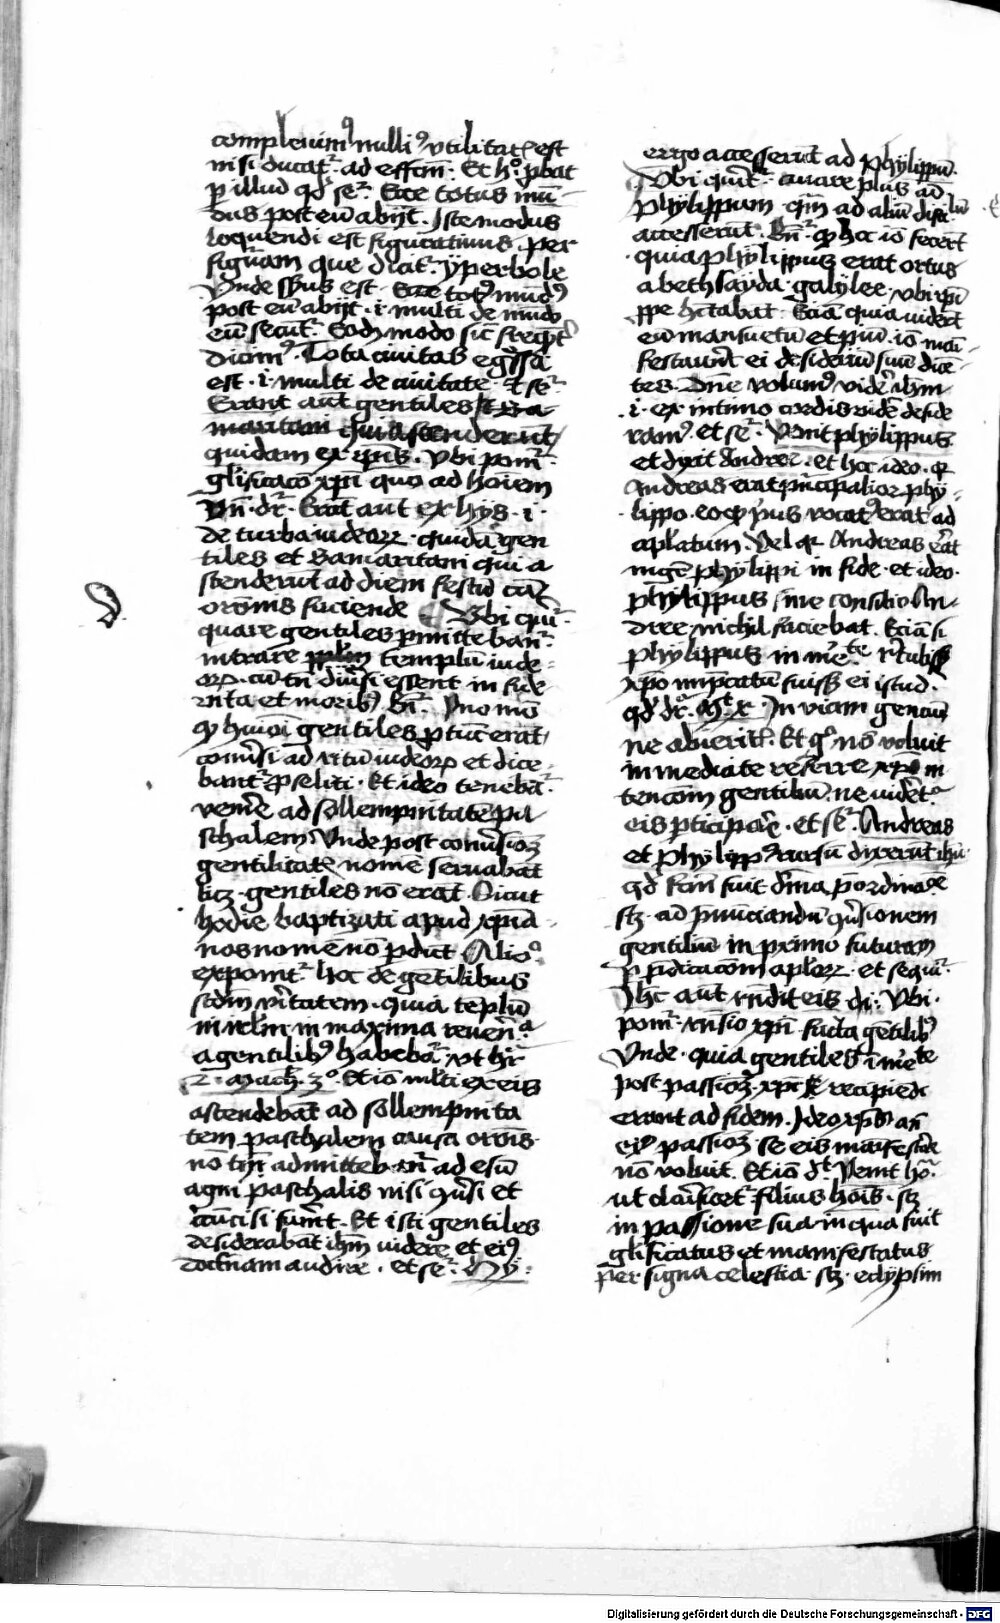 nullius utilitatis est
nisi ducatur ad effectum. Et hoc probat
per illud quod sequitur. Ecce totus mun
dus post eum abijt. Iste modus
loquendi est figurativus. per
figuram que dicitur yperbole
Unde sensus est. Ecce totus mundus
post eum abijt .i. multi de mundo
eum secuntur. Eodem modo sic
dicimus. Tota civitas egressa
est .i. multi de civitate. Et sequitur
Erant autem gentiles
qui ascenderunt
quidam ex ipsis. Ubi ponitur
quo ad hominem
Unde dicitur. Erant autem ex hijs .i.
de turba iudeorum quidam gen
tiles et Samaritani qui a
scenderunt ad diem festum causa
orationis faciende Ubi queritur
quare gentiles permittebantur
intrare templum iude
orum. cum tamen diversi essent in fide
et moribus. Respondetur. Uno modo
quod huiusmodi gentiles
conversi ad ritum iudeorum et dice
bantur proseliti. Et ideo tenebantur
venire ad sollempnitatem pa
schalem Unde post conversionem
gentilitatis nomen servabant
licet gentiles non erant. Sicut
hodie baptizati apud xpristia
nos nomen non perdunt Alio modo
exponitur hoc de gentilibus
secundum veritatem. quia templum
in ierusalem in maxima reverentia
a gentilibus habebatur ut habetur
2. Mach. 3o. Et ideo multi ex eis
ascendebant ad sollempnita
tem paschalem causa orationis.
non tamen admittebantur ad esum
agni paschalis nisi conversi et
circumcisi fuerint. Et isti gentiles
desiderabant ihesum videre et eius
doctrinam audire. et sequitur. Hij
ergo accesserunt ad Phylippum.
Ubi queritur. quare plus ad
Phylippum quam ad alium discipulum
accesserunt. Respondetur. quod hoc ideo fecerunt
quia phylippus erat ortus
a bethsayda galylee. ubi
habitabant. Eciam quia viderunt
eum mansuetum et pium. ideo mani
festaverunt ei desiderium suum dicen
tes. Domine volumus videre ihesum
.i. ex intimo cordis videre deside
ramus. et sequitur. Venit phylippus
et dixit Andree. et hoc ideo. quia
Andreas erat principalior phy
lippo. eo quod prius vocatus erat ad
apostolatum. Vel quia Andreas erat
phylippi in fide. et ideo
phylippus sine consilio An
dree nichil faciebat. Eciam si
phylippus
xpristo imperatum fuisse ei istud.
quod dicitur Mt. x. In viam gencium
ne abieritis. Et ergo non voluit
inmediate referre xpristo in
tencionem gentilium. ne videretur
eis participare. et sequitur. Andreas
et Phylippus rursum dixerunt ihesu
quod factum fuit divina
scilicet ad pronunciandum conversionem
gentilium in proximo futuram
per predicacionem apostolorum. et sequitur.
Ihesus autem respondit eis dicens. Ubi
ponitur responsio xpristi facta gentilibus
Unde. quia gentiles
post passionem xpristi recipiendi
erant ad fidem. Ideo xpristus ante
eius passionem se eis manifestare
non voluit. Et ideo dicit Venit hora
ut clarificetur filius hominis. scilicet
in passione sua in qua fuit
glorificatus et manifestatus
per signa celestia. scilicet. eclypsim
Digitalisierung gefördert durch die Deutsche Forschungsgemeinschaft - DFG